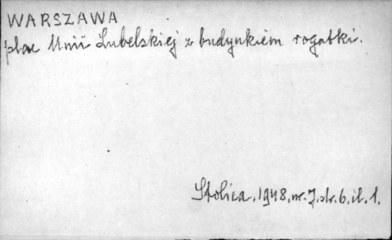 WARSZAWA
plac Unii Lubelskiej z budynkiem rogatki.
Stolica, 1948, nr. 7, str. 6, il. 1.